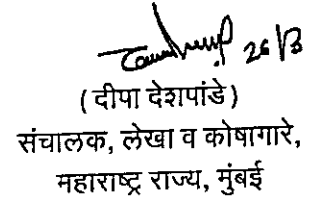 26/3
(दीपा देशपांडे)
संचालक, लेखा व कोषागारे,
महाराष्ट्र राज्य, मुंबई